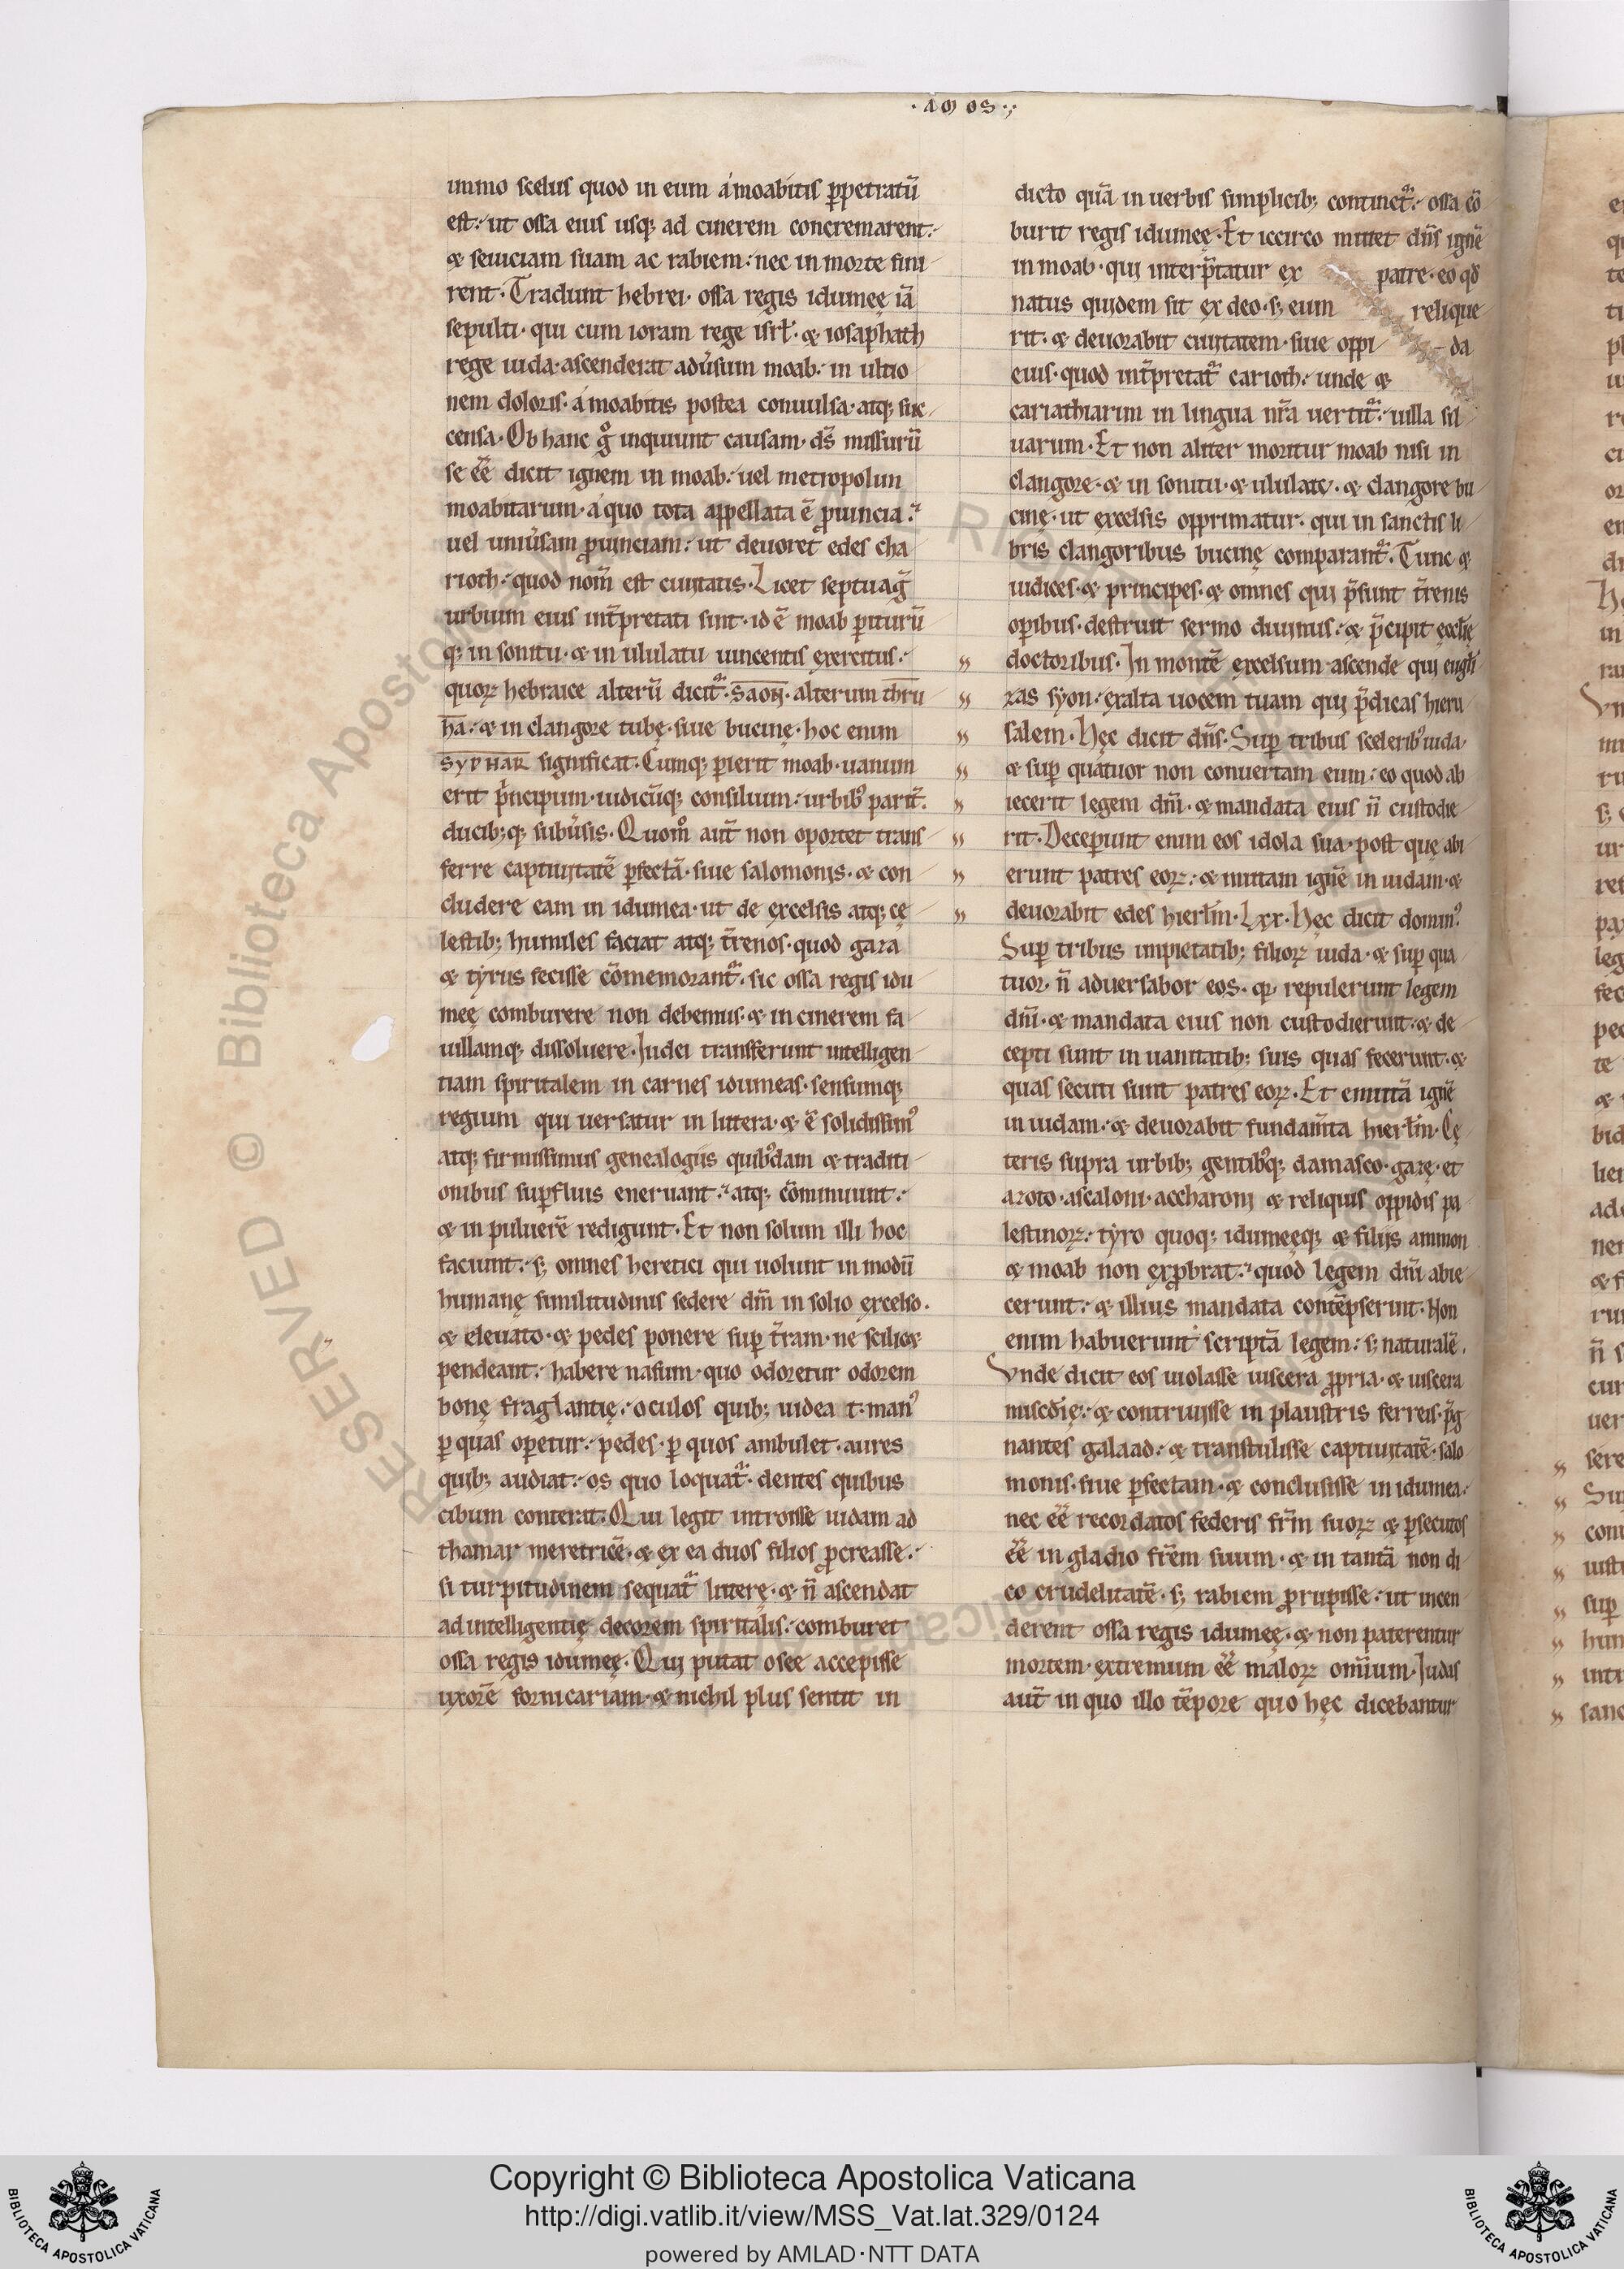 ·AMOS·
immo scelus quod in eum á moabitis ꝑpetratū
est: ut ossa eius usq; ad cinerem concremarent:
& seuiciam suam ac rabiem: nec in morte fini
rent. Tradunt hebrei. ossa regis idumeę iā
sepulti. qui cum ioram rege isrł. & iosaphath
rege iuda. ascenderat adu̓sum moab: in ultio
nem doloris. á moabitis postea conuulsa. atq; suc
censa. Ob hanc gͦ inquiunt causam. ds̄ missurū
se ēē dicit ignem in moab: uel metropolim
moabitarum. á quo tota appellata ē ꝓuincia:
uel uniu̓sam ꝓuinciam: ut deuoret edes cha
rioth: quod nom̄ est ciuitatis. Licet septuaḡ
urbium eius int̄pretati sint. id ē moab ꝑiturū
q; in sonitu. & in ululatu uincentis exercitus:
quoꝝ hebraice alterū dicit᷑. S̄AON̄. alterum t̄hru
h̄a: & in clangore tubę. siue bucinę. hoc enim
SYPHAR significat. Cumq; ꝑierit moab. uanum
erit p̓ncipum. iudicūq; consilium: urbibꝰ parit̄.
ducib;q; subu̓sis. Quomͦ aut̄ non oportet trans
ferre captiuitatē ꝑfectā. siue salomonis. & con
cludere eam in idumea. ut de excelsis atq; cę
lestib; humiles faciat atq; t̄renos. quod gaza
& tyrus fecisse cōmemorant᷑. sic ossa regis idu
meę comburere non debemus. & in cinerem fa
uillamq; dissoluere. Iudei transferunt intelligen
tiam spiritalem in carnes idumeas. sensumq;
regium qui uersatur in littera. & ē solidissimꝰ
atq; firmissimus genealogiis quibꝰdam & traditi
onibus suꝑfluis eneruant: atq; cōminuunt:
& in puluerē redigunt. Et non solum illi hoc
faciunt: s; omnes heretici qui uolunt in modū
humanę similitudinis sedere dm̄ in solio excelso.
& eleuato. & pedes ponere suꝑ t̄ram. ne scilicet
pendeant: habere nasum. quo odoretur odorem
bonę fraglantię: oculos quib; uidea t. manꝰ
ꝑ quas oꝑetur: pedes. ꝑ quos ambulet. aures
quib; audiat: os quo loquat᷑. dentes quibus
cibum conterat. Qui legit introisse iudam ad
thamar meretricē. & ex ea duos filios ꝓcreasse:
si turpitudinem sequat᷑ litterę. & n̄ ascendat
ad intelligentię decorem spiritalis: comburet
ossa regis idumeę. Qui putat osee accepisse
uxorē fornicariam. & nichil plus sentit in
dicto quā in uerbis simplicib; continet᷑: ossa cō
burit regis idumeę. Et iccirco mittet dn̄s ignē
in moab. qui interp̄tatur ex patre. eo qđ
natus quidem sit ex deo. s; eum relique
rit: & deuorabit ciuitatem. siue oppi da
eius. quod int̄pretat᷑ carioth: unde &
cariathiarim in lingua nr̄a uertit᷑: uilla sil
uarum. Et non aliter moritur moab nisi in
clangore. & in sonitu. & ululatu. & clangore bu
cinę. ut excelsis opprimatur. qui in sanctis li
bris clangoribus bucinę comparant᷑. Tunc &
iudices. & principes. & omnes qui p̄sunt t̄renis
opibus. destruit sermo diuinus: & p̄cipit ęcclię
doctoribus. In montē excelsum ascende qui eugli
zas syon: exalta uocem tuam qui p̄dicas hieru
salem. Hęc dicit dn̄s. Suꝑ tribus scelerib; iuda.
& suꝑ quatuor non conuertam eum: eo quod ab
iecerit legem dn̄i. & mandata eius n̄ custodie
rit. Deceꝑunt enim eos idola sua. post quę abi
erunt patres eoꝝ: & mittam ignē in iudam. &
deuorabit edes hierlm̄. Lxx. Hęc dicit dominꝰ.
Suꝑ tribus impietatib; filioꝝ iuda. & suꝑ qua
tuor. n̄ aduersabor eos. qꝛ repulerunt legem
dn̄i. & mandata eius non custodierunt. & de
cepti sunt in uanitatib; suis quas fecerunt. &
quas secuti sunt patres eoꝝ. Et emittā ignē
in iudam: & deuorabit fundam̄ta hierlm̄. Cę
teris supra urbib; gentibꝰq; damasco. gazę. et
azoto. ascaloni. accharoni & reliquis oppidis pa
lestinoꝝ: tyro quoq; idumeęq; & filiis ammon
& moab non exꝓbrat: quod legem dn̄i abie
cerunt: & illius mandata contēpserint. Non
enim habuerunt scriptā legem: s; naturalē.
Vnde dicit eos uiolasse uiscera ꝓpria. & uiscera
miscđię: & contriuisse in plaustris ferreis. p̄g
nantes galaad: & transtulisse captiuitatē. salo
monis. siue ꝑfectam. & conclusisse in idumea:
nec ēē recordatos federis fr̄m suoꝝ & ꝑsecutos
ēē in gladio fr̄em suum. & in tantā non di
co crudelitatē. s; rabiem ꝓrupisse: ut incen
derent ossa regis idumeę. & non paterentur
mortem. extremum ēē maloꝝ om̄ium. Iudas
aut̄ in quo illo tēpore quo hęc dicebantur
Copyright © Biblioteca Apostolica Vaticana
http://digi.vatlib.it/view/MSS_Vat.lat.329/0124
powered by AMLAD·NTT DATA
BIBLIOTECA APOSTOLICA VATICANA
BIBLIOTECA APOSTOLICA VATICANA